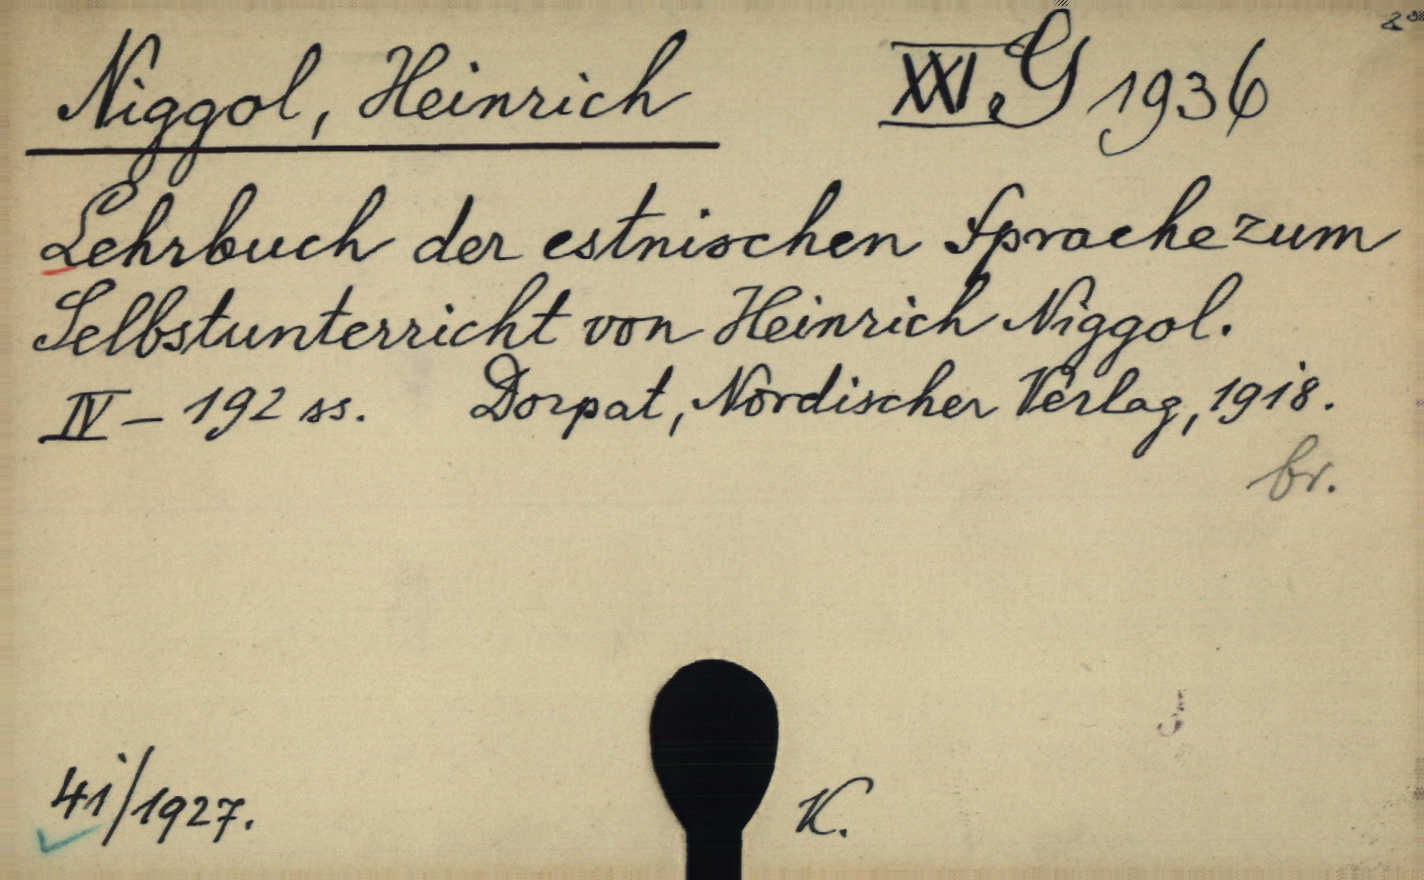 Niggol, Heinrich
XXI. G 1936
Lehrbuch der estnischen Sprache zum
Selbstunterricht von Heinrich Niggol.
IV – 192 ss. Dorpat, Nordischer Verlag, 1918.
br.
41/1927.
K.